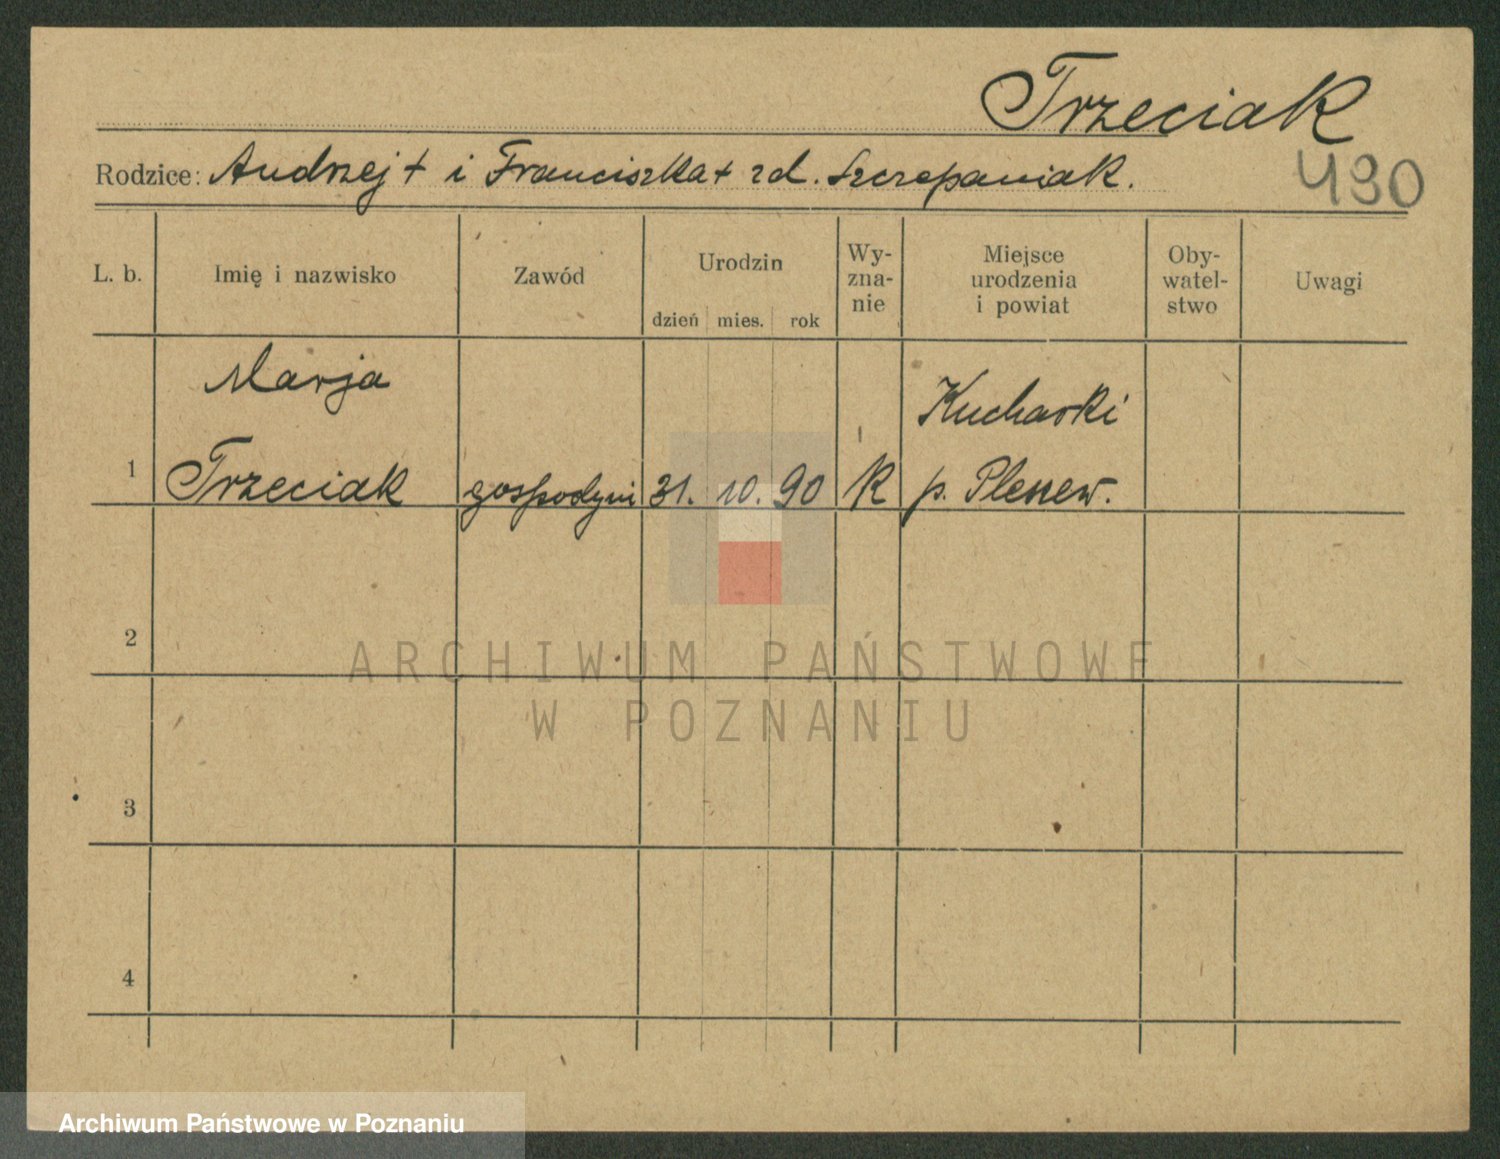 Trzeciak
Rodzice: Andrzej + i Franciszka + zd. Szczepaniak.
490
L. b.
Imię i nazwisko
Zawód
Urodzin
dzień mies. rok
Wy-
zna-
nie
Miejsce
urodzenia
i powiat
Oby-
watel-
stwo
Uwagi
Marja
Kucharki
1 Trzeciak gospodyni 31. 10. 90 K p. Pleszew.
2
ARCHIWUM PAŃSTWOWE
W POZNANIU
3
4
Archiwum Państwowe w Poznaniu